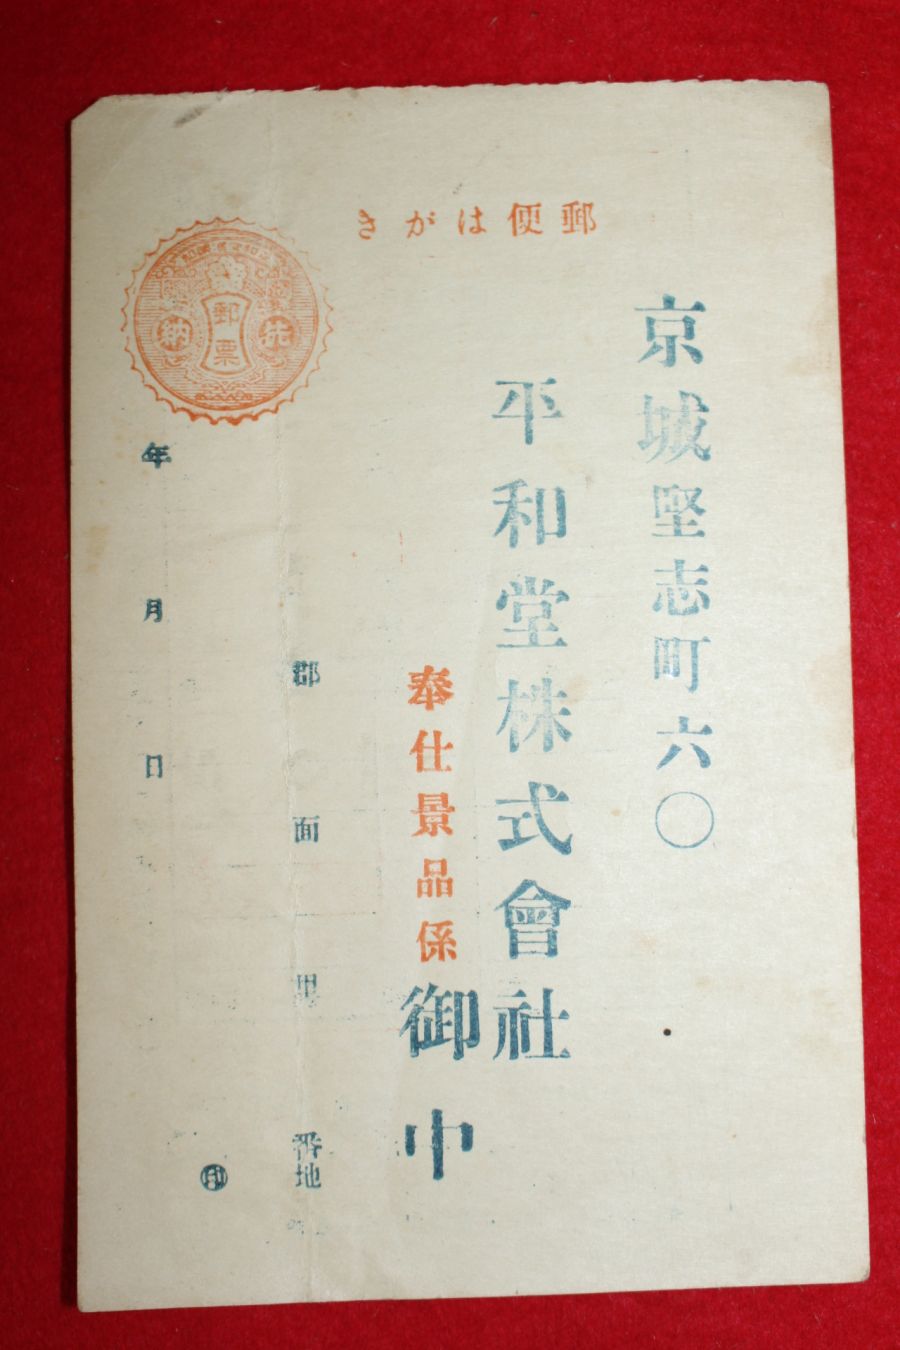 郵便はがき
京城堅志町六〇
平和堂株式會社
奉仕景品係御中
郡面里番地
年月日
印
郵票
先納